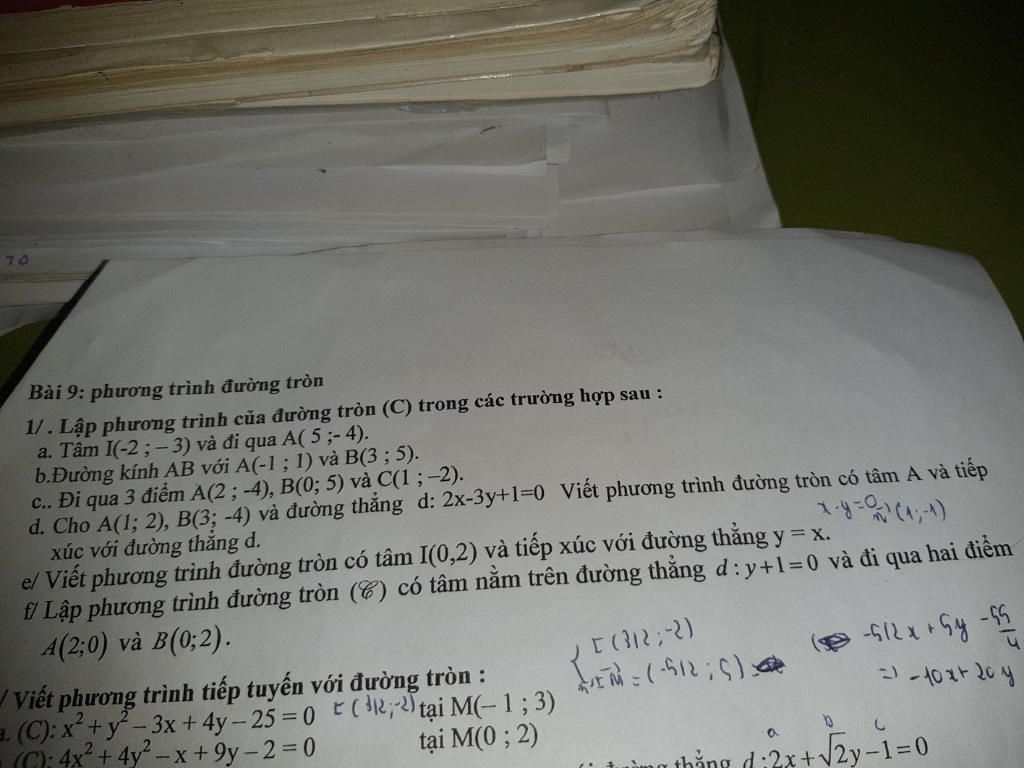 10
Bài 9: phương trình đường tròn
1/ . Lập phương trình của đường tròn (C) trong các trường hợp sau :
a. Tâm I(-2 ; – 3) và đi qua A( 5 ;- 4).
b.Đường kính AB với A(-1 ; 1) và B(3 ; 5).
c.. Đi qua 3 điểm A(2 ; -4), B(0; 5) và C(1 ; –2).
d. Cho A(1; 2), B(3; -4) và đường thẳng d: 2x-3y+1=0 Viết phương trình đường tròn có tâm A và tiếp
xúc với đường thẳng d.
x-y=0 (1;-1)
e/ Viết phương trình đường tròn có tâm I(0,2) và tiếp xúc với đường thẳng y = x.
f/ Lập phương trình đường tròn (𝒞) có tâm nằm trên đường thẳng d : y + 1 = 0 và đi qua hai điểm
A(2;0) và B(0;2).
I (3/2 ; -2)
IM = (-5/2 ; 5)
-5/2x + 5y -55/4
=) -10x + 20y
/ Viết phương trình tiếp tuyến với đường tròn :
(C): x² + y² – 3x + 4y – 25 = 0 I (3/2;-2) tại M(– 1 ; 3)
(C): 4x² + 4y² – x + 9y – 2 = 0 tại M(0 ; 2)
a b c
thẳng d :2x+√2y–1=0